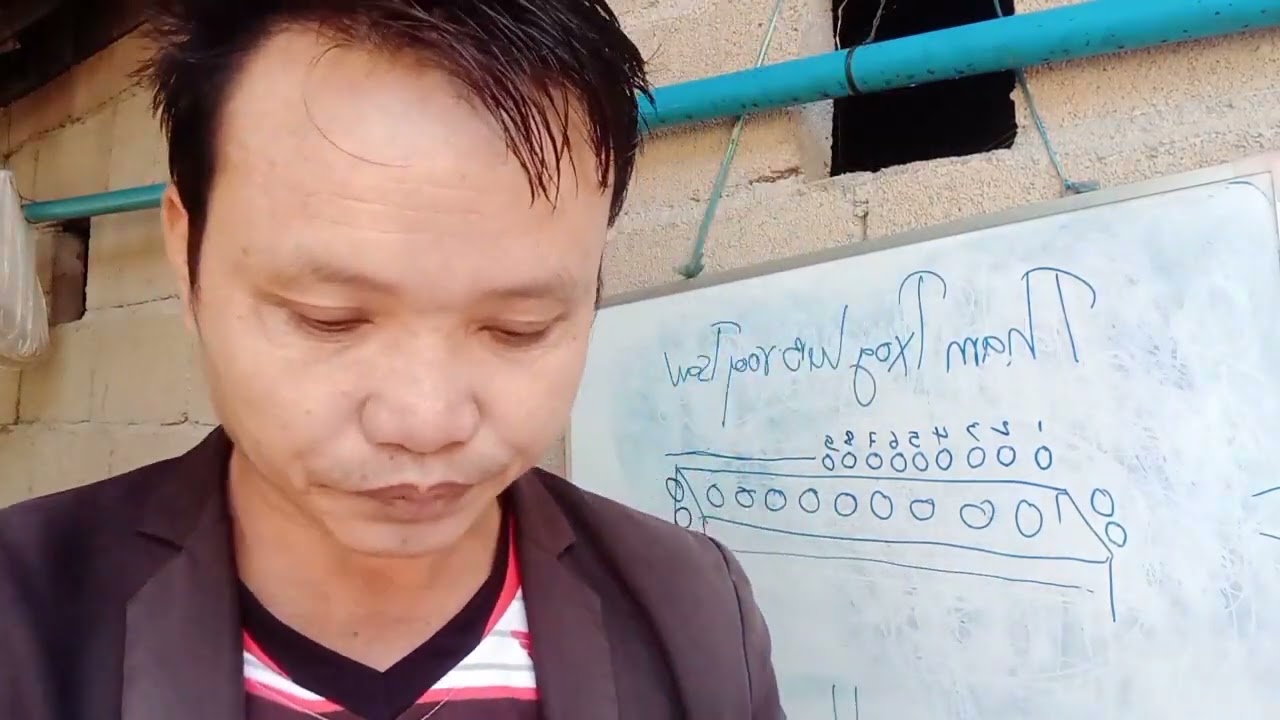 Tham Txog lub rooj
1 2 3 4 5 6 7 8 9